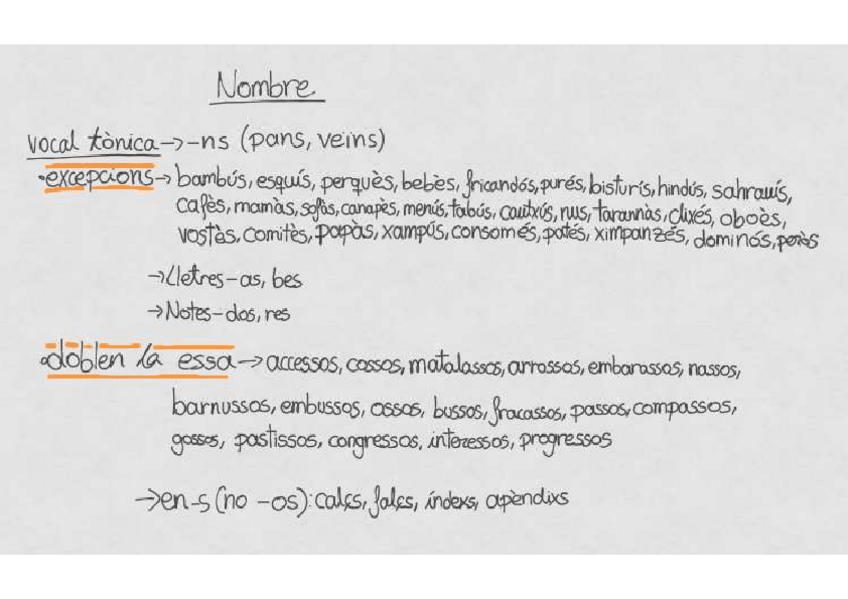 Nombre
vocal tònica → -ns (pans, veïns)
• excepcions → bambús, esquís, perquès, bebès, fricandós, purés, bisturís, hindús, sahrauís,
cafès, mamàs, sofàs, canapès, menús, tabús, cautxús, rus, tarannàs, clixés, oboès,
vostès, comitès, papàs, xampús, consomés, patés, ximpanzés, dominós, peròs
→ Lletres - as, bes
→ Notes - dos, res
• doblen la essa → accessos, cossos, matalassos, arrossos, embarassos, nassos,
barnussos, embussos, ossos, bussos, fracassos, passos, compassos,
gossos, pastissos, congressos, interessos, progressos
→ en -s (no -os): calçs, falçs, índexs, apèndixs